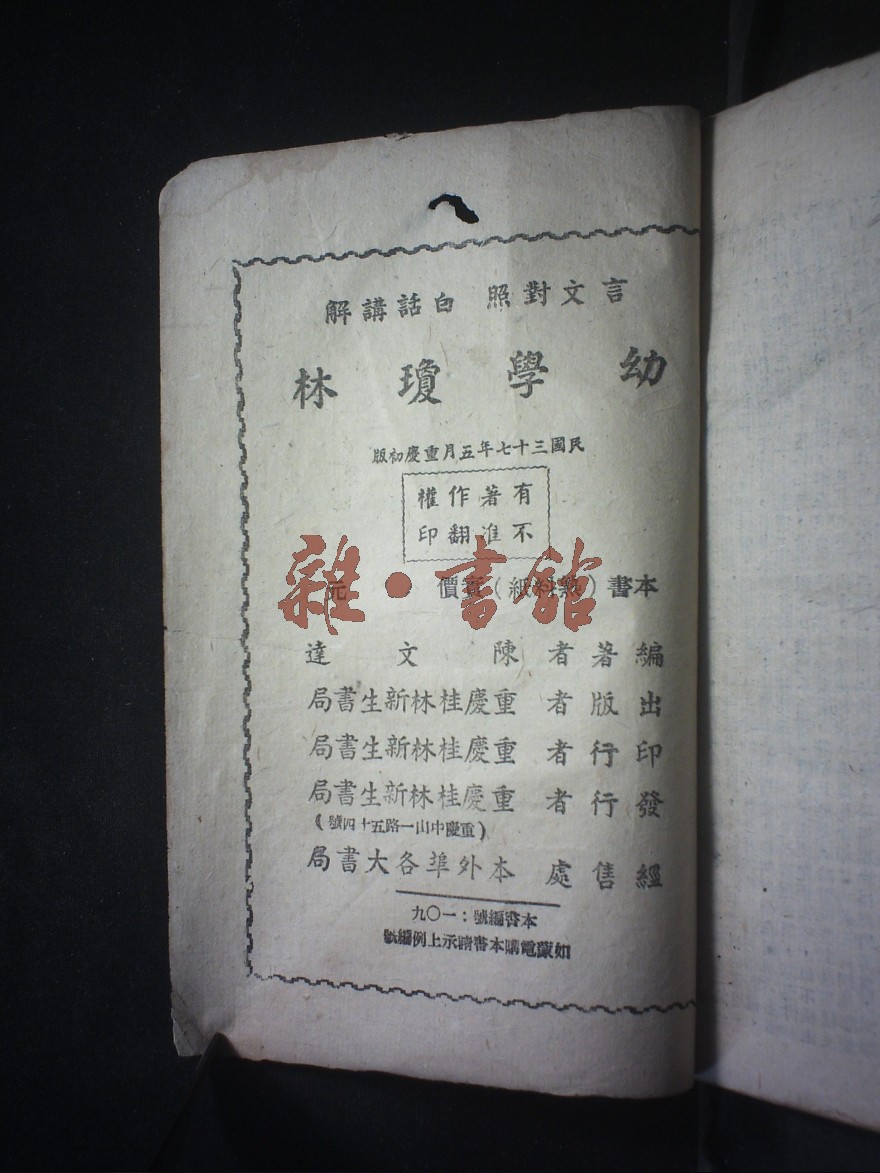 言文對照 白話講解
幼學瓊林
民國三十七年五月重慶初版
有著作權
不准翻印
本書（熟料紙）實價 元
雜·書館
編著者 陳文達
出版者 重慶桂林新生書局
印行者 重慶桂林新生書局
發行者 重慶桂林新生書局
（重慶中山一路五十四號）
經售處 本外埠各大書局
本書編號：一〇九
如蒙電購本書請示上例編號